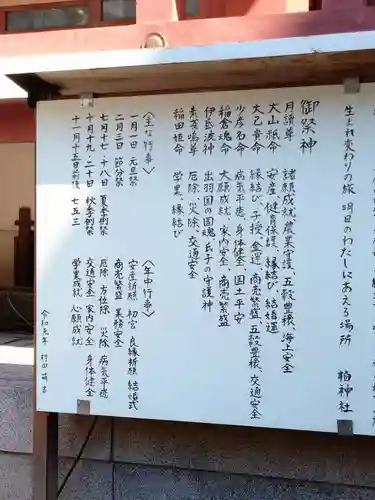 生まれ変わりの旅 明日のわたしにあえる場所 柏神社
御祭神
月讀尊 諸願成就、農業守護、五穀豊穣、海上安全
大山祇命 安産、健育保護、縁結び、結婚運
大己貴命 縁結び、子授、金運、商売繁盛、五穀豊穣、交通安全
少彦名命 病気平癒、身体健全、国土平安
稲倉魂命 大願成就、家内安全、商売繁盛
伊氐波神 出羽国の国魂、氏子の守護神
素戔嗚尊 厄除、災除、交通安全
稲田姫命 学業、縁結び
〈主な行事〉
一月一日 元旦祭
二月三日 節分祭
七月十七・十八日 夏季例祭
十月十九・二十日 秋季例祭
十一月十五日前後 七五三
〈年中行事〉
安産祈願 初宮 良縁祈願 結婚式
商売繁盛 業務安全
厄除 方位除 災除 病気平癒
交通安全 家内安全 身体健全
学業成就 心願成就
令和元年